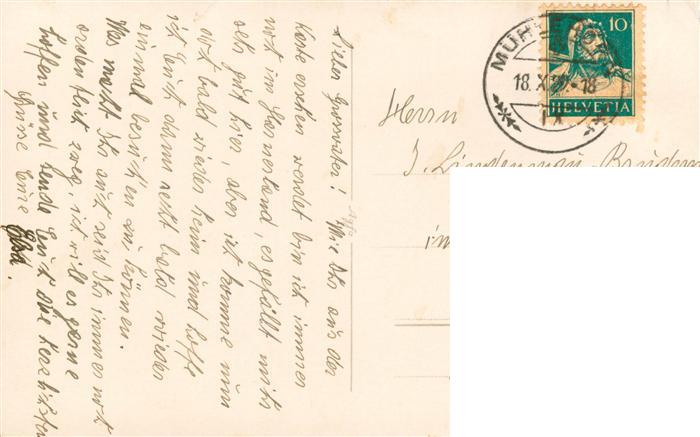 Lieber Grossvater! Wie Ihr aus der
Karte ersehen werdet bin ich immer
noch im Haberland, es gefällt mir
sehr gut hier, aber ich komme nun
doch bald wieder heim und hoffe
ich Euch dann recht bald wieder
einmal besuchen zu können.
Was macht Ihr auch seid Ihr immer noch
ordentlich zweg, ich will es gerne
hoffen und sende Euch die herzlichsten
Grüsse Eure Elsa.
Herrn
J. Lindenmau Brudern
im
MÜH
18. X. 18
IX
10
HELVETIA